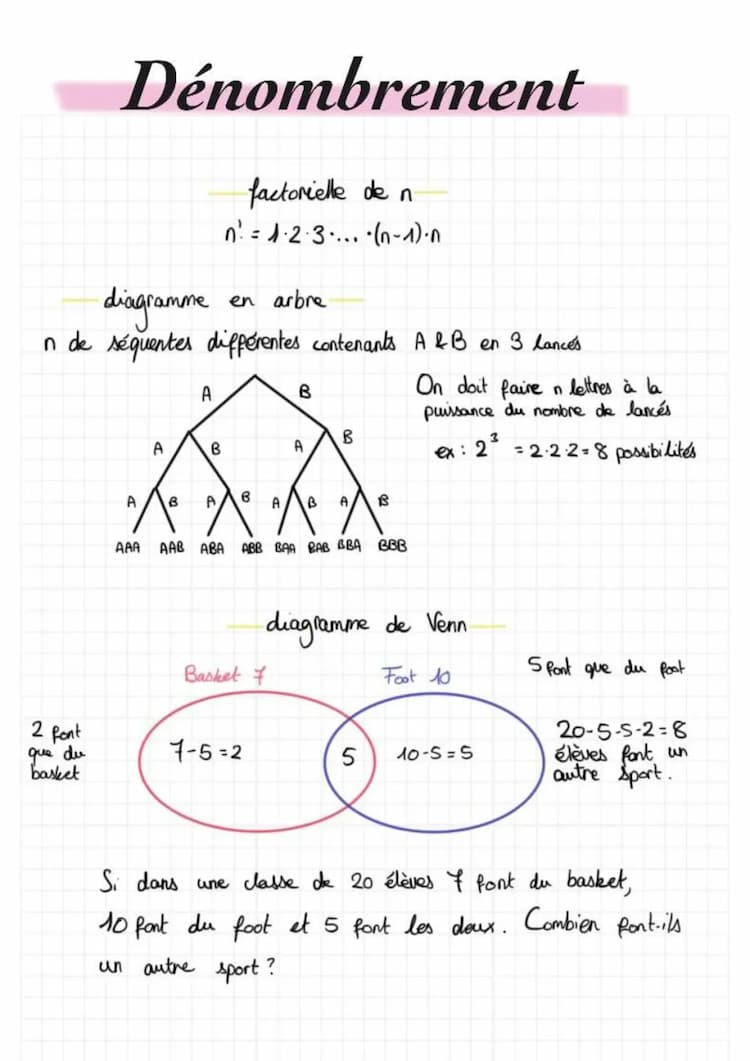 Dénombrement
factorielle de n
n! = 1·2·3·...·(n-1)·n
diagramme en arbre
n de séquentes différentes contenants A & B en 3 lancés
On doit faire n lettres à la
puissance du nombre de lancés
ex : 2³ = 2·2·2 = 8 possibilités
A B
A B A B
A B A B A B A B
AAA AAB ABA ABB BAA BAB BBA BBB
diagramme de Venn
Basket 7
Foot 10
5 font que du foot
2 font
que du
basket
7-5=2
5
10-5=5
20-5-5-2=8
élèves font un
autre sport.
Si dans une classe de 20 élèves 7 font du basket,
10 font du foot et 5 font les deux. Combien font-ils
un autre sport ?